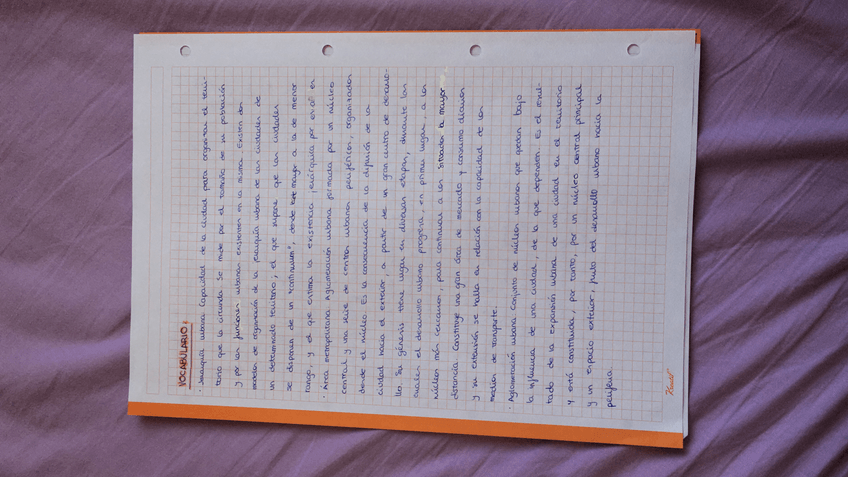 VOCABULARIO:
· Jerarquía urbana: Capacidad de la ciudad para organizar el terri-
torio que la circunda. Se mide por el tamaño de su población
y por las funciones urbanas existentes en la misma. Existen dos
modelos de organización de la jerarquía urbana de las ciudades de
un determinado territorio; el que supone que las ciudades
se disponen de un "continuum", desde mayor a la de menor
rango, y el que estima la existencia jerárquica por en
· Área metropolitana: Aglomeración urbana formada por un núcleo
central y una serie de centros urbanos periféricos, organizados
desde el núcleo. Es la consecuencia de la difusión de la
ciudad hacia el exterior, a partir de un gran centro de desarro-
llo. Su génesis tiene lugar en diversas etapas, durante las
cuales el desarrollo urbano progresa, en primer lugar, a los
núcleos más cercanos, para continuar a los situados a mayor
distancia. Constituye una gran área de mercado y consumo
y su extensión se halla en relación con la capacidad de los
medios de transporte.
· Aglomeración urbana: Conjunto de núcleos urbanos que quedan bajo
la influencia de una ciudad, de la que dependen. Es el resul-
tado de la expansión urbana de una ciudad en el territorio
y está constituida, por tanto, por un núcleo central principal
y un espacio exterior, fruto del desarrollo urbano hacia la
periferia.